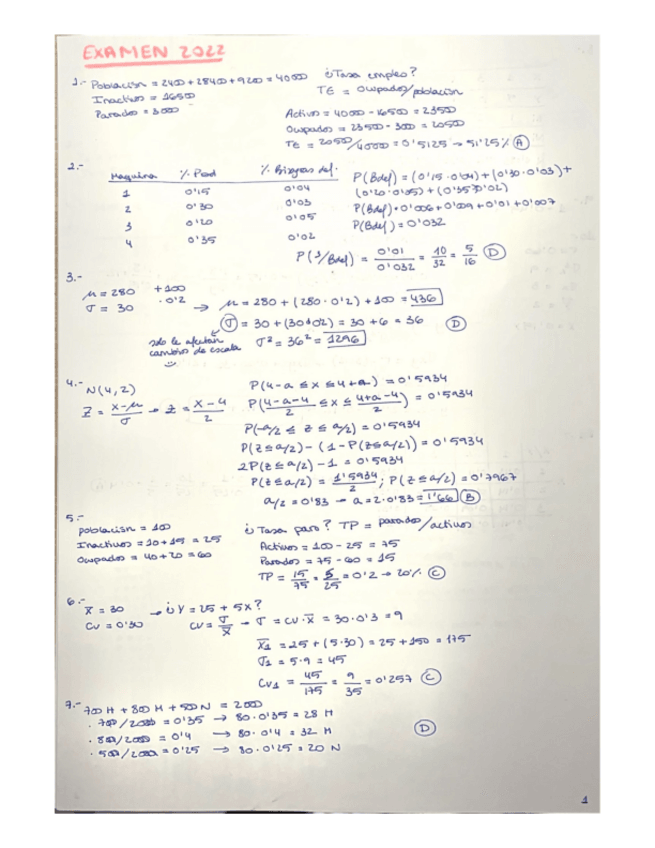 EXAMEN 2022
1.- Población = 2400 + 28400 + 9200 = 40000 ¿Tasa empleo?
Inactivos = 16500 TE = Ocupados/población
Parados = 3000
Activos = 40000 - 16500 = 23500
Ocupados = 23500 - 3000 = 20500
TE = 20500/40000 = 0'5125 → 51'25% (A)
2.-
Maquina % Prod % Bisagras def.
1 0'15 0'04
2 0'30 0'03
3 0'20 0'05
4 0'35 0'02
P(Bdef) = (0'15·0'04) + (0'30·0'03) +
(0'20·0'05) + (0'35·0'02)
P(Bdef) = 0'006 + 0'009 + 0'01 + 0'007
P(Bdef) = 0'032
P(3/Bdef) = 0'01/0'032 = 10/32 = 5/16 (D)
3.-
μ = 280 +100
σ = 30 ·0'2 → μ = 280 + (280·0'2) + 100 = 436
σ = 30 + (30·0'2) = 30 + 6 = 36 (D)
solo le afectan
cambios de escala σ² = 36² = 1296
4.- N(4,2)
Z = x-μ/σ → Z = x-4/2
P(4-a ≤ x ≤ 4+a) = 0'5934
P(4-a-4/2 ≤ x ≤ 4+a-4/2) = 0'5934
P(-a/2 ≤ z ≤ a/2) = 0'5934
P(z ≤ a/2) - (1 - P(z ≤ a/2)) = 0'5934
2P(z ≤ a/2) - 1 = 0'5934
P(z ≤ a/2) = 1'5934/2 ; P(z ≤ a/2) = 0'7967
a/2 = 0'83 → a = 2·0'83 = 1'66 (B)
5.-
población = 100 ¿Tasa paro? TP = parados/activos
Inactivos = 10 + 15 = 25
Ocupados = 40 + 20 = 60
Activos = 100 - 25 = 75
Parados = 75 - 60 = 15
TP = 15/75 = 5/25 = 0'2 → 20% (C)
6.-
x̄ = 30 → ¿Y = 25 + 5x?
CV = 0'30 CV = σ/x̄ → σ = CV·x̄ = 30·0'3 = 9
x̄1 = 25 + (5·30) = 25 + 150 = 175
σ1 = 5·9 = 45
CV1 = 45/175 = 9/35 = 0'257 (C)
7.- 700 H + 800 M + 500 N = 2000
· 700/2000 = 0'35 → 80·0'35 = 28 H
· 800/2000 = 0'4 → 80·0'4 = 32 M (D)
· 500/2000 = 0'25 → 80·0'25 = 20 N
1